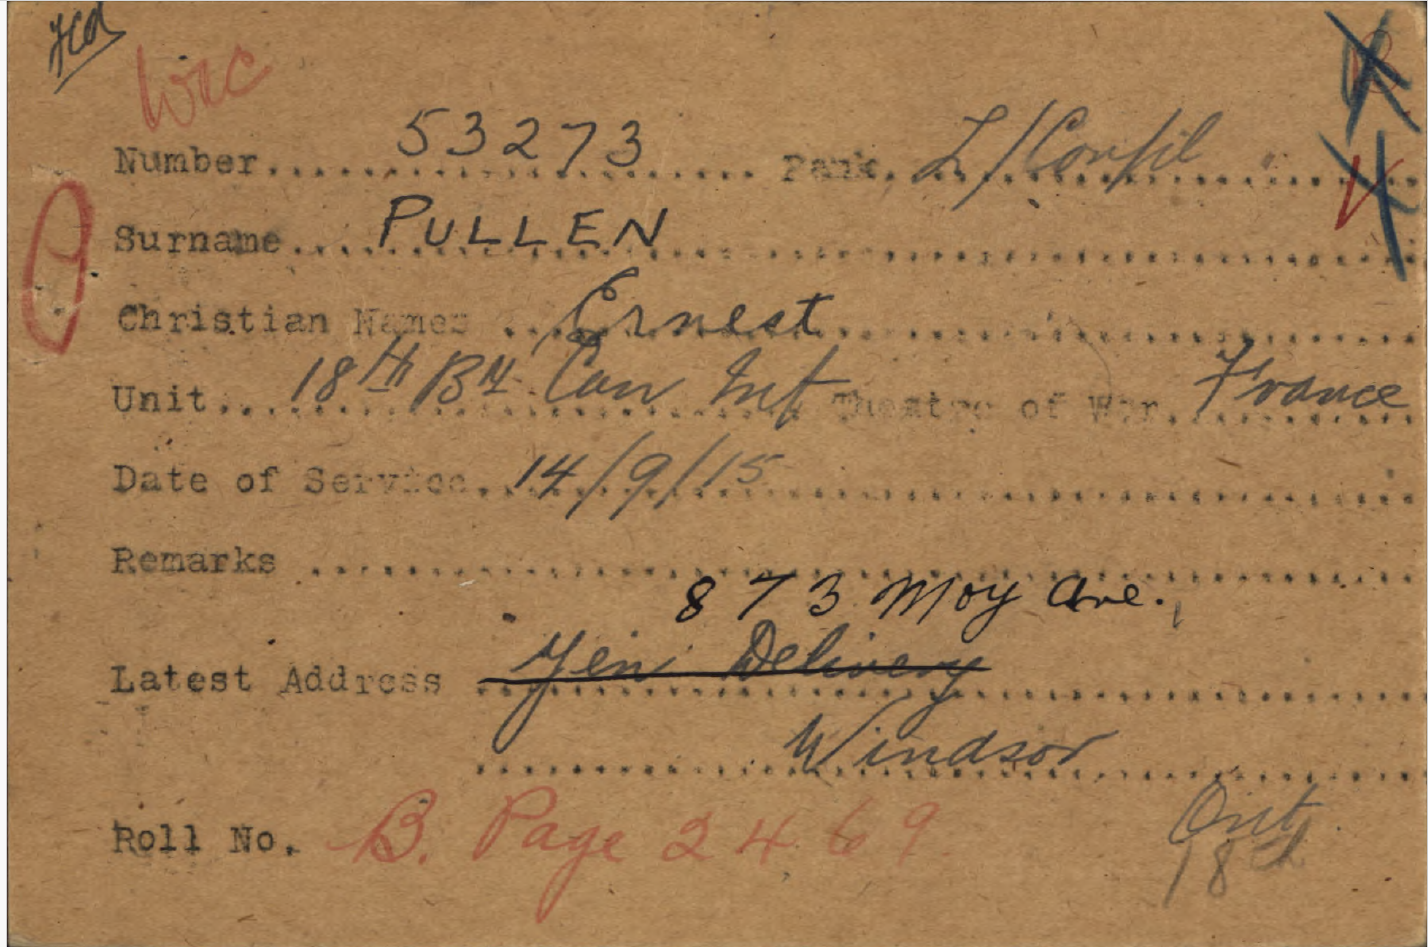 Wac
Number..... 53273 ..... Rank. L/Corpl
Surname.... PULLEN
Christian Names ... Ernest
Unit.. 18th Bn Can Inf Theatre of War. France
Date of Service. 14/9/15
Remarks ....
873 Moy Ave.
Latest Address Gen Delivery
Windsor
Ont
Roll No. B. Page 2469
18th